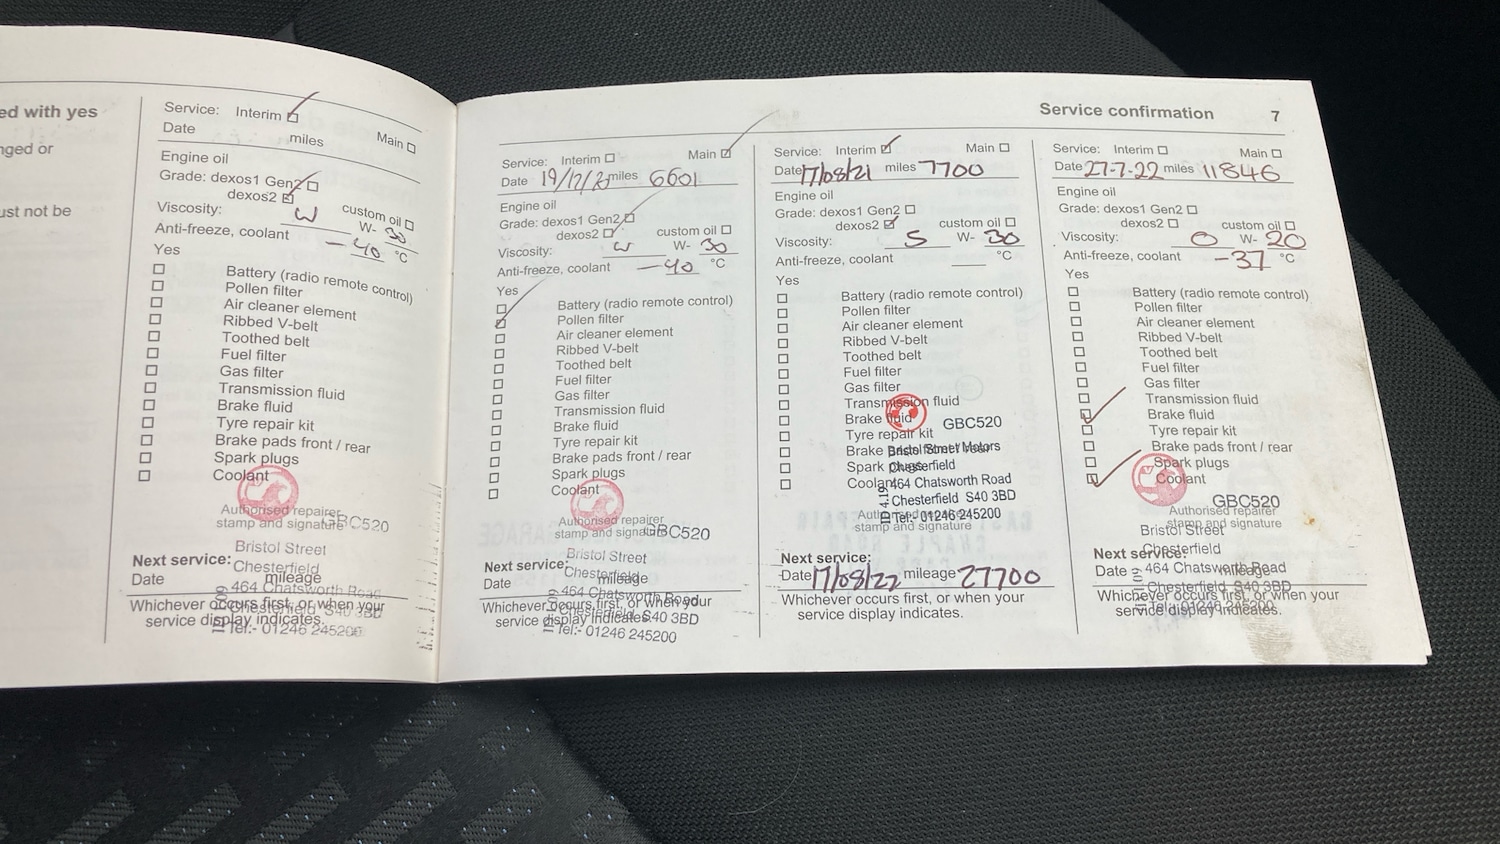 ed with yes
nged or
ust not be
Service: Interim
Date miles Main
Engine oil
Grade: dexos1 Gen2
dexos2
Viscosity: custom oil
W W- 30
Anti-freeze, coolant -40 °C
Yes
Battery (radio remote control)
Pollen filter
Air cleaner element
Ribbed V-belt
Toothed belt
Fuel filter
Gas filter
Transmission fluid
Brake fluid
Tyre repair kit
Brake pads front / rear
Spark plugs
Coolant
Authorised repairer
stamp and signature
GBC520
Bristol Street
Chesterfield
464 Chatsworth Road
Chesterfield S40 3BD
Tel:- 01246 245200
Next service:
Date mileage
Whichever occurs first, or when your
service display indicates.
Service confirmation 7
Service: Interim Main
Date miles 6601
Engine oil
Grade: dexos1 Gen2
dexos2 custom oil
Viscosity: W W- 30
Anti-freeze, coolant -40 °C
Yes
Battery (radio remote control)
Pollen filter
Air cleaner element
Ribbed V-belt
Toothed belt
Fuel filter
Gas filter
Transmission fluid
Brake fluid
Tyre repair kit
Brake pads front / rear
Spark plugs
Coolant
Authorised repairer
stamp and signature
GBC520
Bristol Street
Chesterfield
464 Chatsworth Road
Chesterfield S40 3BD
Tel:- 01246 245200
Next service:
Date mileage
Whichever occurs first, or when your
service display indicates.
Service: Interim Main
Date 17/08/21 miles 7700
Engine oil
Grade: dexos1 Gen2
dexos2 custom oil
Viscosity: 5 W- 30
Anti-freeze, coolant °C
Yes
Battery (radio remote control)
Pollen filter
Air cleaner element
Ribbed V-belt
Toothed belt
Fuel filter
Gas filter
Transmission fluid
Brake fluid
Tyre repair kit
Brake pads front / rear
Spark plugs
Coolant
Authorised repairer
stamp and signature
GBC520
Bristol Street Motors
Chesterfield
464 Chatsworth Road
Chesterfield S40 3BD
Tel:- 01246 245200
Next service:
Date 17/08/22 mileage 27700
Whichever occurs first, or when your
service display indicates.
Service: Interim Main
Date 27-7-22 miles 11846
Engine oil
Grade: dexos1 Gen2
dexos2 custom oil
Viscosity: 0 W- 20
Anti-freeze, coolant -37 °C
Yes
Battery (radio remote control)
Pollen filter
Air cleaner element
Ribbed V-belt
Toothed belt
Fuel filter
Gas filter
Transmission fluid
Brake fluid
Tyre repair kit
Brake pads front / rear
Spark plugs
Coolant
GBC520
Authorised repairer
stamp and signature
Bristol Street
Chesterfield
464 Chatsworth Road
Chesterfield S40 3BD
Tel:- 01246 245200
Next service:
Date mileage
Whichever occurs first, or when your
service display indicates.